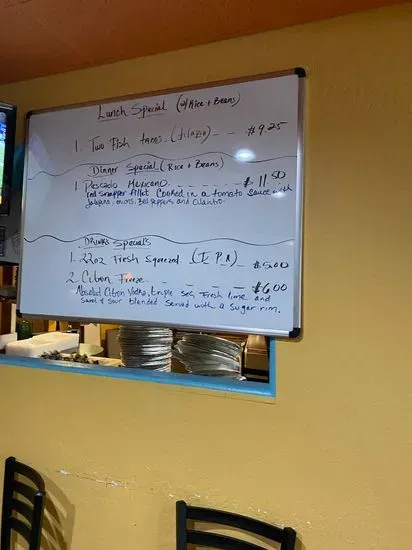 Lunch Special (w/Rice + Beans)
1. Two Fish tacos - (tilapia) - - $9.25
Dinner Special (Rice + Beans)
1 Pescado Mexicano - - - - - - $11.50
red snapper fillet cooked in a tomato sauce with
Jalapeno, onions, Bell peppers and Cilantro.
Drinks Specials
1. 22oz Fresh Squeezed - (I.P.A) - $5.00
2. Citron Freeze - - - - - $6.00
Absolut Citron Vodka, triple sec, Fresh lime and
Sweet & Sour blended served with a sugar rim.